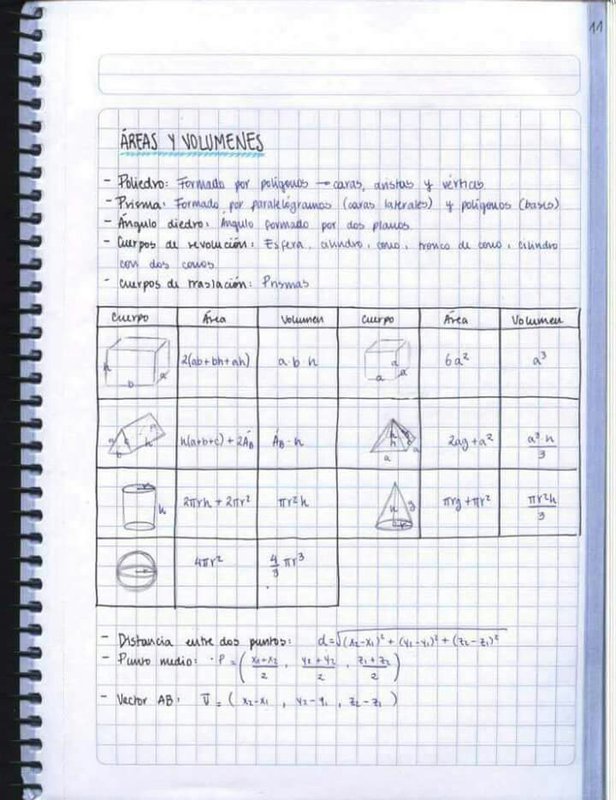 11
ÁREAS Y VOLUMENES
- Poliedro: Formado por polígonos → caras, aristas y vértices
- Prisma: Formado por paralelógramos (caras laterales) y polígonos (bases)
- Ángulo diedro: Ángulo formado por dos planos
- Cuerpos de revolución: Esfera, cilindro, cono, tronco de cono, cilindro
con dos conos
- Cuerpos de traslación: Prismas
Cuerpo Área Volumen Cuerpo Área Volumen
h b a 2(ab+bh+ah) a·b·h a a a 6a² a³
h(a+b+c) + 2ÁB ÁB·h h a 2ag+a² a³·h/3
r h 2πrh + 2πr² πr²h h g r πrg+πr² πr²h/3
r 4πr² 4/3 πr³
- Distancia entre dos puntos: d=√(x₂-x₁)² + (y₂-y₁)² + (z₂-z₁)²
- Punto medio: ·P = (x₁+x₂/2, y₁+y₂/2, z₁+z₂/2)
- Vector AB: V = (x₂-x₁, y₂-y₁, z₂-z₁)